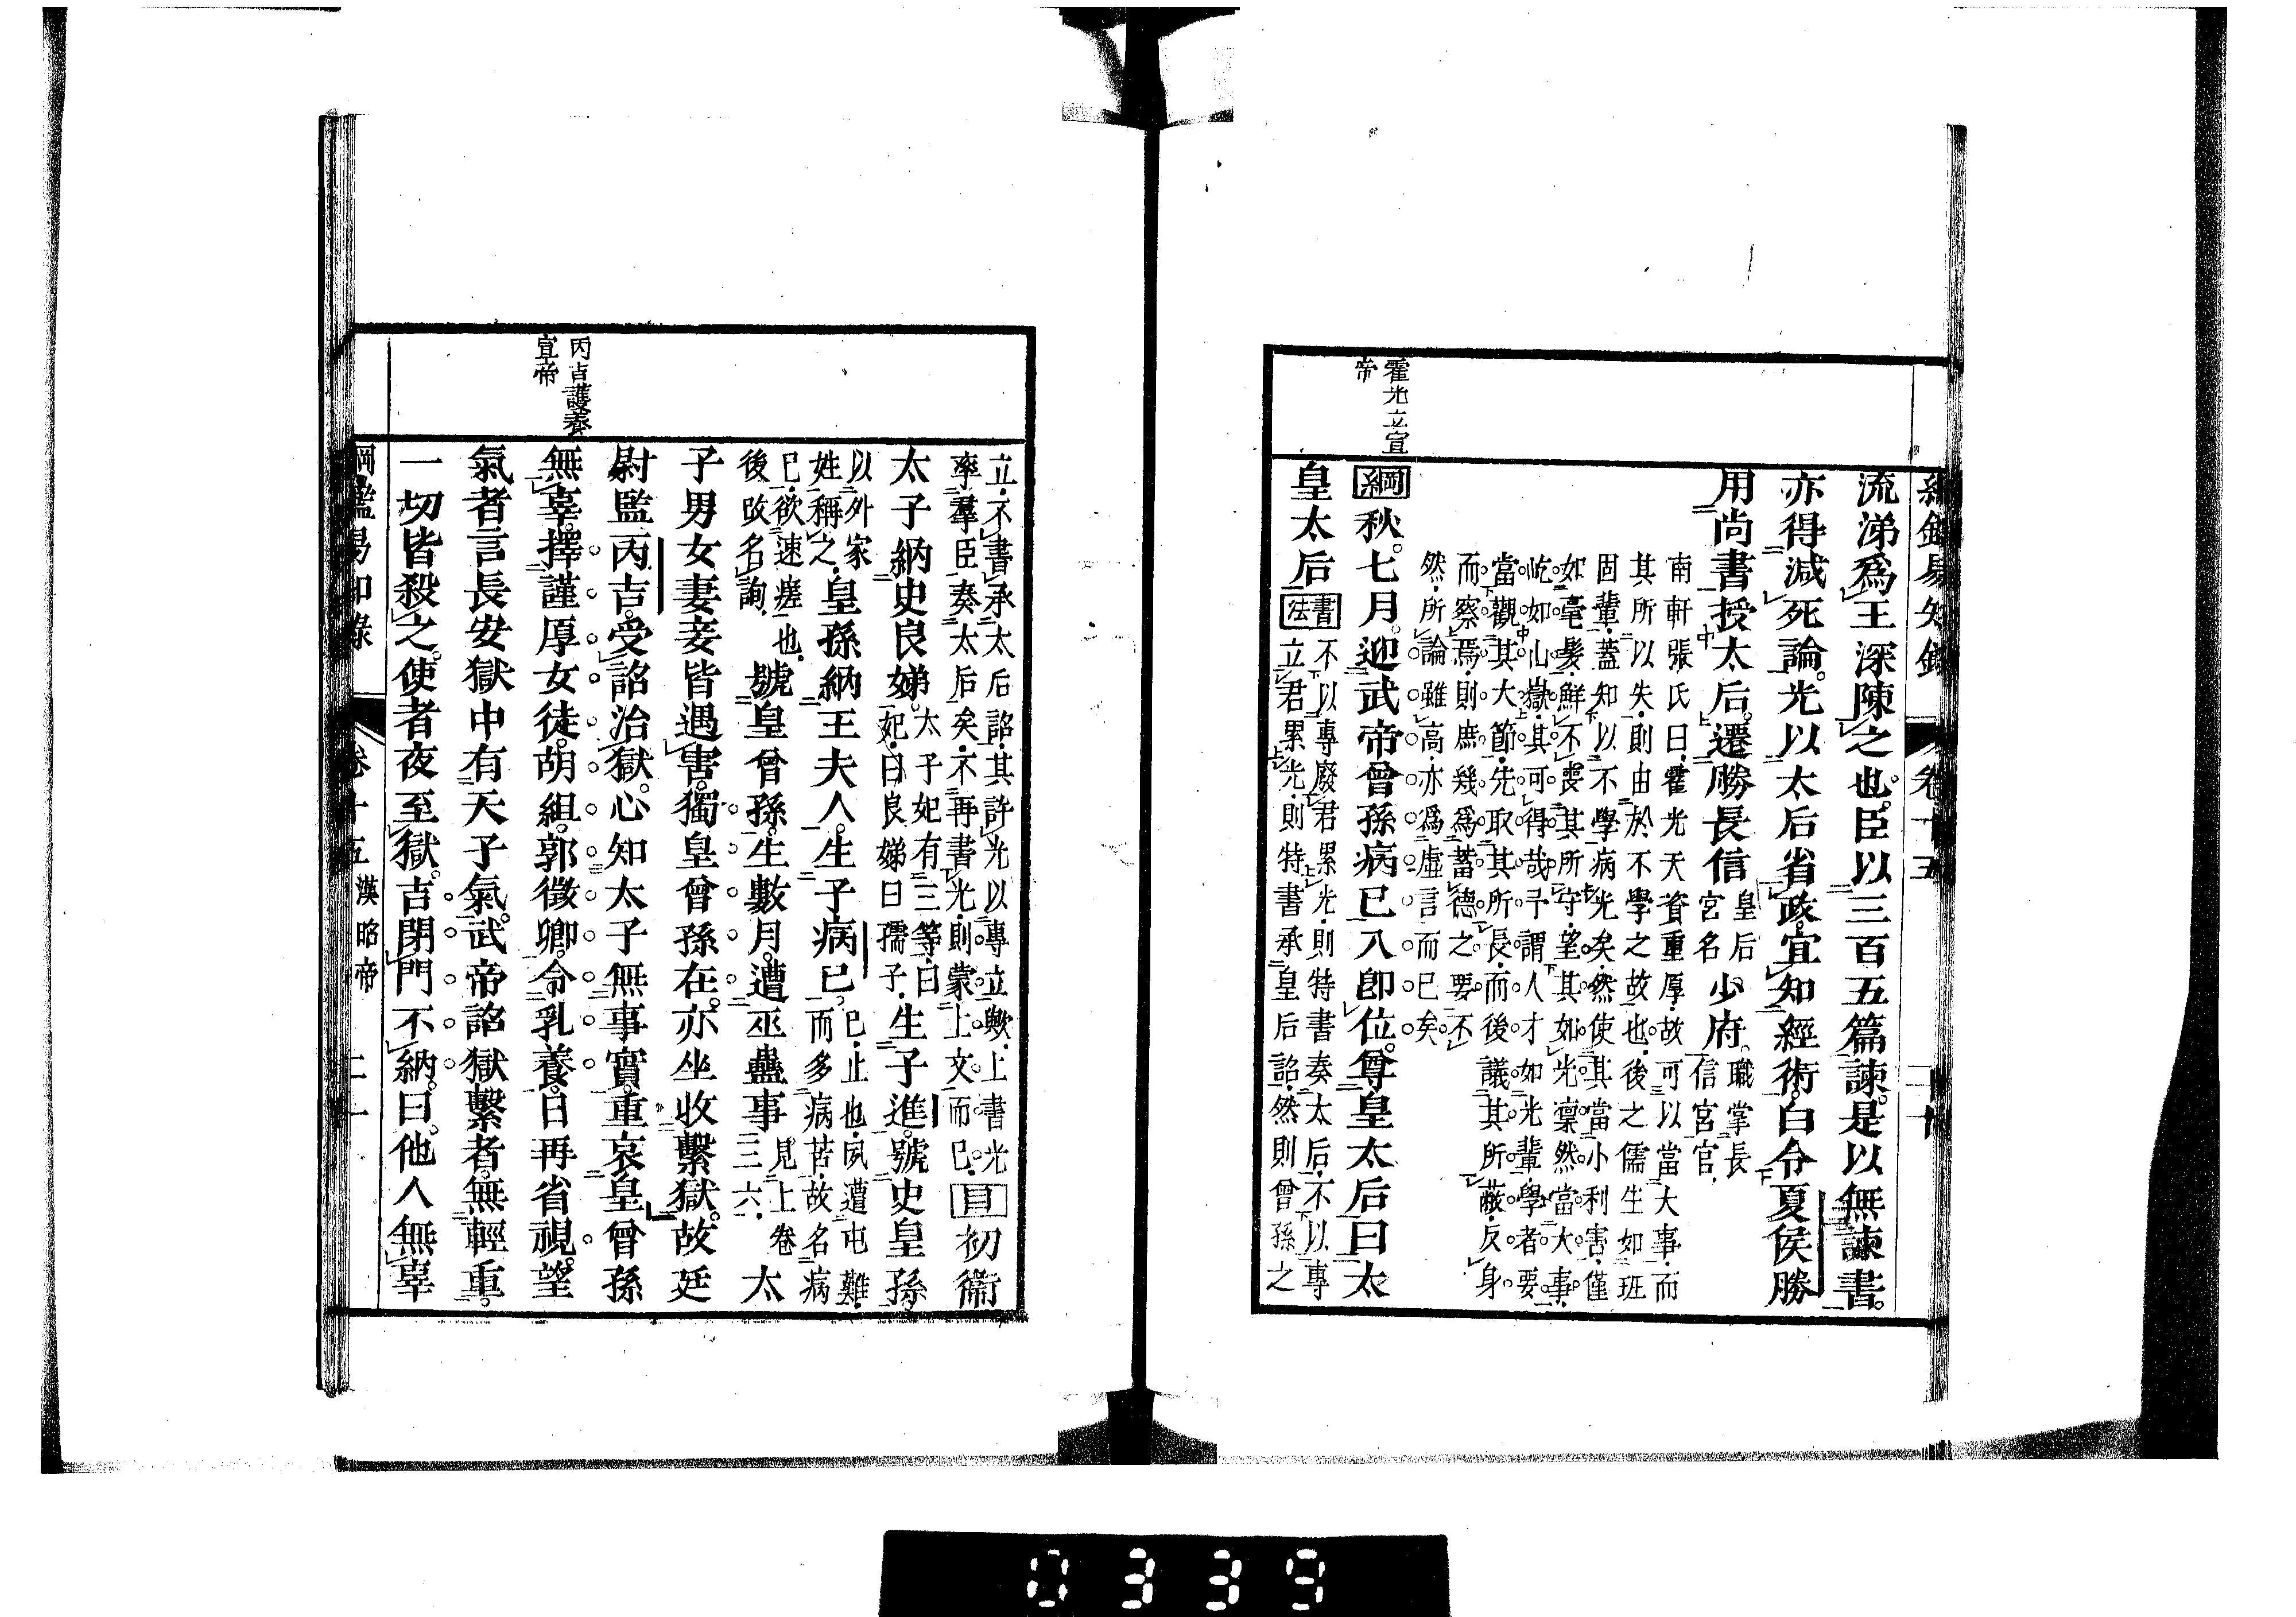 綱鑑易知錄 卷十五 二十
流涕爲王深陳之也。臣以三百五篇諫。是以無諫書。
亦得減死論。光以太后省政。宜知經術。白令夏侯勝
用尚書授太后。遷勝長信
皇后
宮名
少府。
職掌長
信宮官.
南軒張氏曰.霍光天資重厚.故可以當大事.而
其所以失.則由於不學之故也.後之儒生如班
固輩.蓋知以不學病光矣.然使其當小利害.僅
如毫髮.鮮不喪其所守.望其如光凜然當大事.
屹如山嶽.其可得哉.予謂人才如光輩.學者要
當觀其大節.先取其所長.而後議其所蔽.反身
而察焉.則庶幾爲蓄德之要.不
然.所論雖高.亦爲虛言而已矣
霍光立宣
帝
綱秋。七月。迎武帝曾孫病已入卽位。尊皇太后曰太
皇太后
書
法
不以專廢君累光.則特書奏太后.不以專
立君累光.則特書承皇后詔.然則曾孫之
立.不書承太后詔.其許光以專立歟.上書光
率羣臣奏太后矣.不再書光.則蒙上文而已.
目初衞
太子納史良娣。
太子妃有三等.曰
妃.曰良娣曰孺子.
生子進。號史皇孫.
以外家
姓稱之.
皇孫納王夫人。生子病已。
已.止也.夙遭屯難.
而多病苦.故名病
已.欲速瘥也.
後改名詢.
號皇曾孫。生數月。遭巫蠱事
見上卷
三六.
太
子男女妻妾皆遇害。獨皇曾孫在。亦坐收繫獄。故廷
尉監丙吉。受詔治獄。心知太子無事實。重哀皇曾孫
丙吉護養
宣帝
無辜。擇謹厚女徒。胡組。郭徵卿。令乳養。日再省視。望
氣者言長安獄中有天子氣。武帝詔獄繫者。無輕重。
一切皆殺之。使者夜至獄。吉閉門不納。曰。他人無辜
綱鑑易知錄 卷十五 漢昭帝 二十一
0339